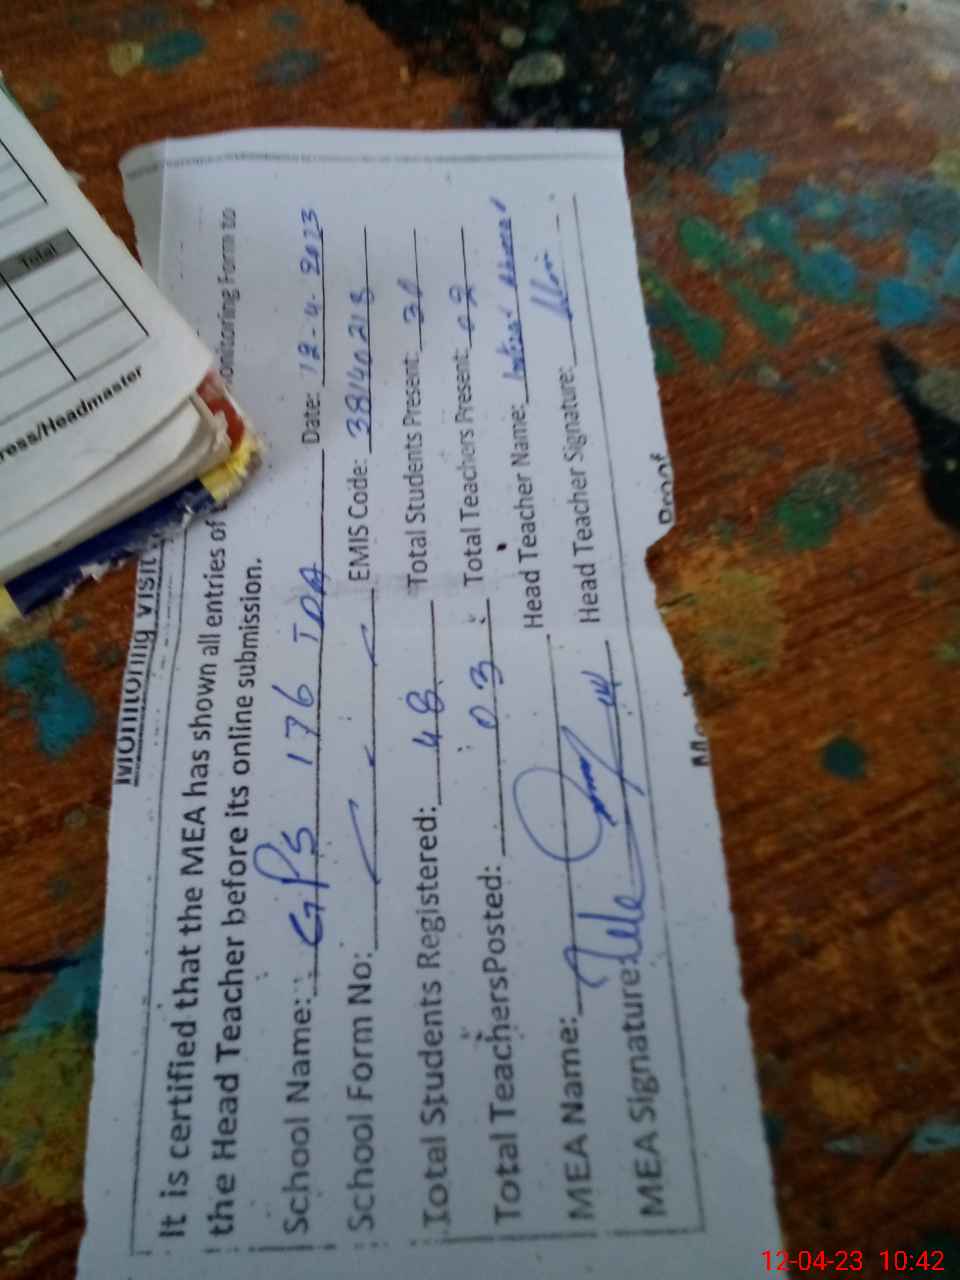 Total
ress/Headmaster
Monitoring Visit
It is certified that the MEA has shown all entries of Monitoring Form to
the Head Teacher before its online submission.
School Name: GPS 176 TDA Date: 12-4-2023
School Form No: EMIS Code:
Total Students Registered: 48 Total Students Present:
Total Teachers Posted: 03 Total Teachers Present: 02
MEA Name: Head Teacher Name:
MEA Signature: Head Teacher Signature:
Proof
12-04-23 10:42